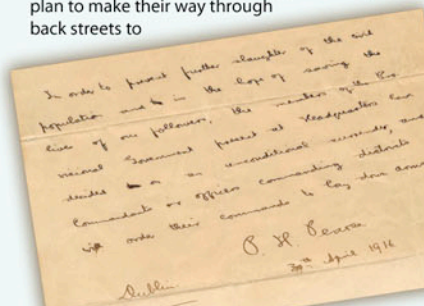 plan to make their way through
back streets to
In order to prevent further slaughter of the civil
population and in the hope of saving the
lives of our followers, the members of the Pro-
visional Government present at Headquarters have
decided on an unconditional surrender, and
commandants or officers commanding districts
will order their commands to lay down arms
P. H. Pearse
30th April 1916
Dublin.